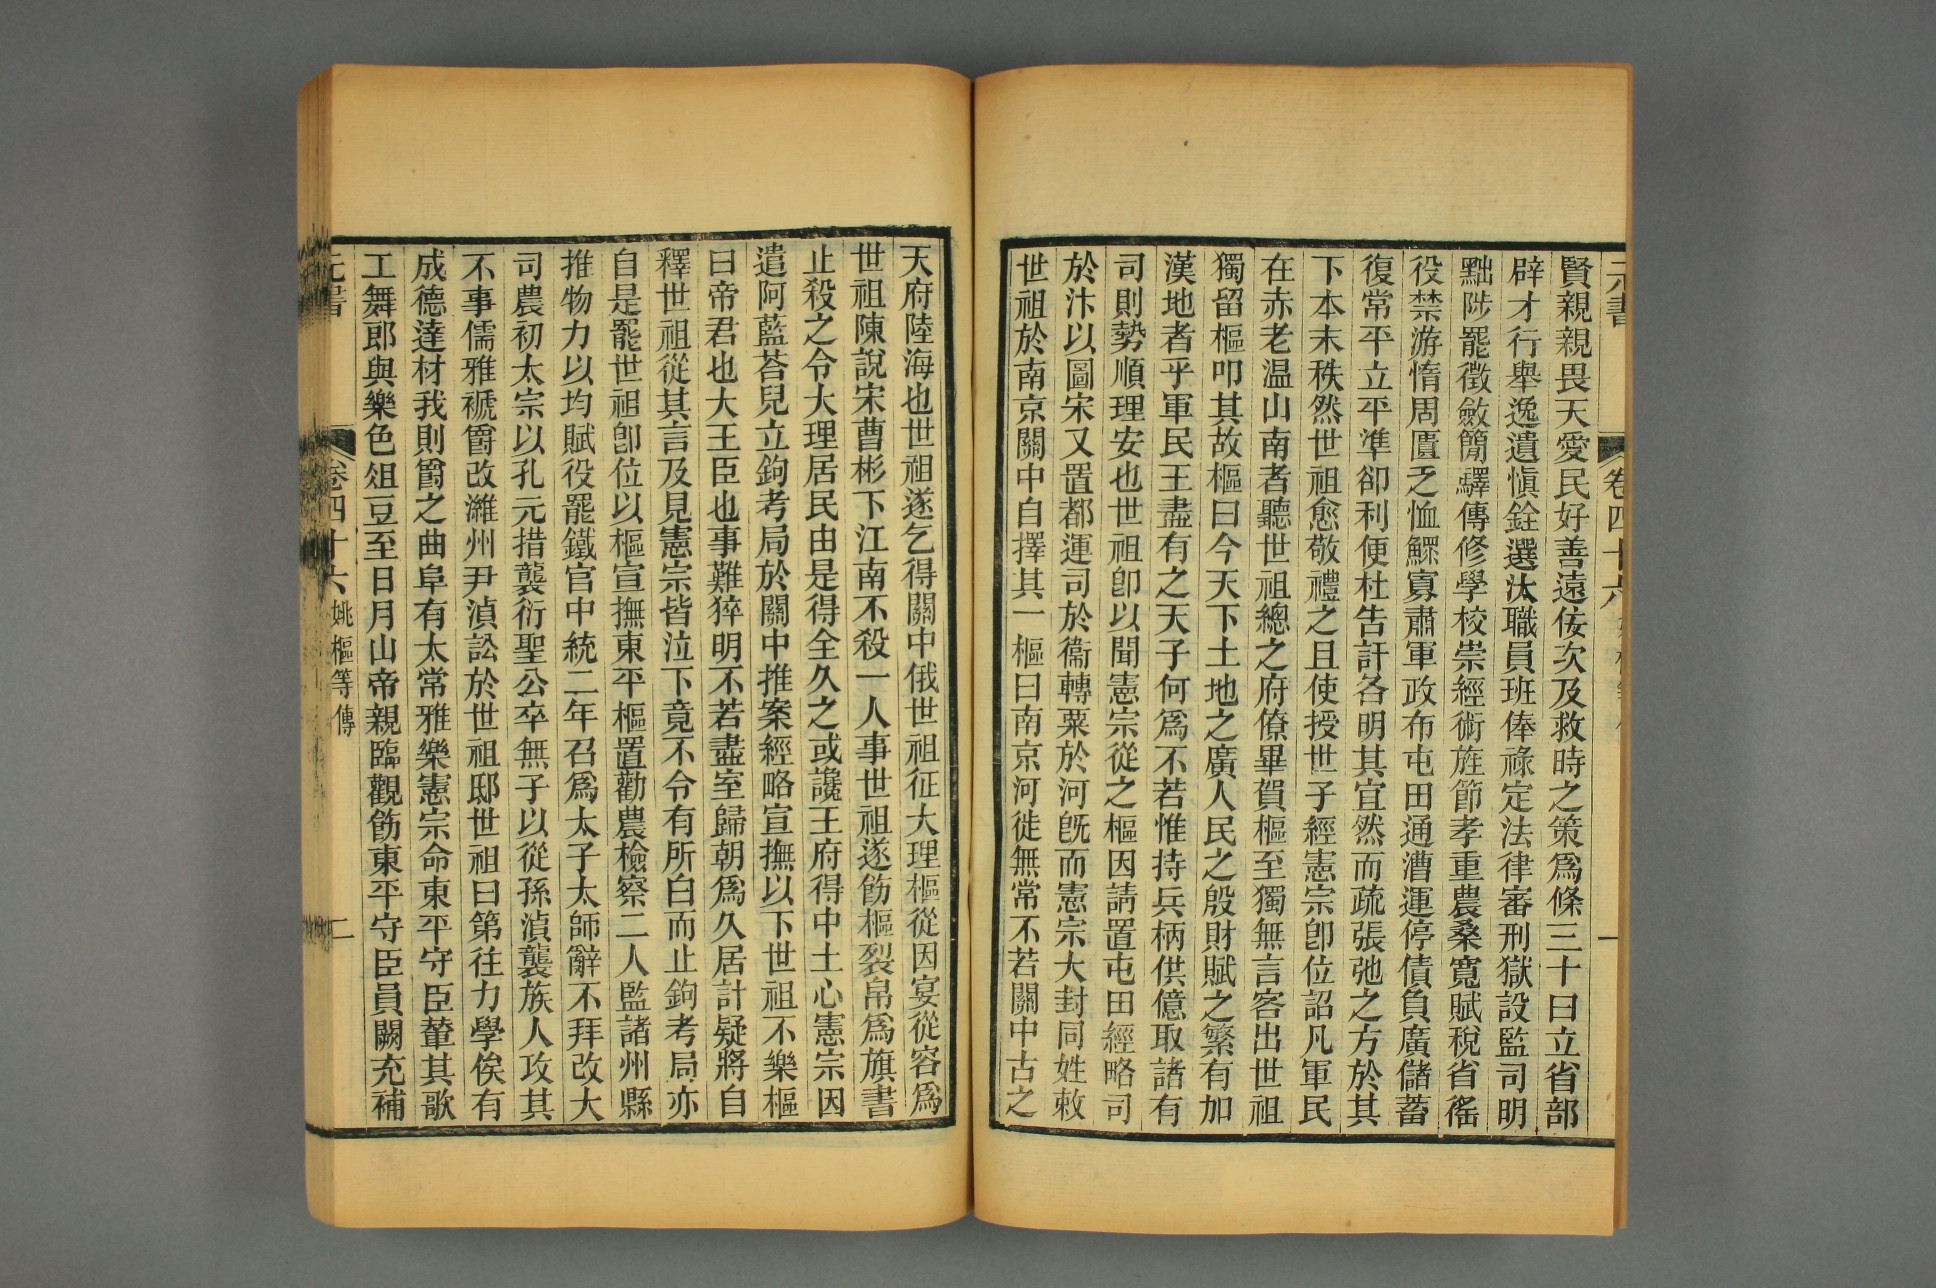 賢親親畏天愛民好善遠佞次及救時之策爲條三十曰立省部
辟才行舉逸遺愼銓選汰職員班俸祿定法律審刑獄設監司明
黜陟罷徵斂簡驛傳修學校崇經術旌節孝重農桑寬賦稅省徭
役禁游惰周匱乏恤鰥寡肅軍政布屯田通漕運停債負廣儲蓄
復常平立平準卻利便杜告訐各明其宜然而疏張弛之方於其
下本末秩然世祖愈敬禮之且使授世子經憲宗卽位詔凡軍民
在赤老温山南者聽世祖總之府僚畢賀樞至獨無言客出世祖
獨留樞叩其故樞曰今天下土地之廣人民之殷財賦之繁有加
漢地者乎軍民王盡有之天子何爲不若惟持兵柄供億取諸有
司則勢順理安也世祖卽以聞憲宗從之樞因請置屯田經略司
於汴以圖宋又置都運司於衞轉粟於河旣而憲宗大封同姓敕
世祖於南京關中自擇其一樞曰南京河徙無常不若關中古之
天府陸海也世祖遂乞得關中俄世祖征大理樞從因宴從容爲
世祖陳說宋曹彬下江南不殺一人事世祖遂飭樞裂帛爲旗書
止殺之令大理居民由是得全久之或讒王府得中土心憲宗因
遣阿藍荅兒立鉤考局於關中推案經略宣撫以下世祖不樂樞
曰帝君也大王臣也事難猝明不若盡室歸朝爲久居計疑將自
釋世祖從其言及見憲宗皆泣下竟不令有所白而止鉤考局亦
自是罷世祖卽位以樞宣撫東平樞置勸農檢察二人監諸州縣
推物力以均賦役罷鐵官中統二年召爲太子太師辭不拜改大
司農初太宗以孔元措襲衍聖公卒無子以從孫湞襲族人攻其
不事儒雅褫爵改濰州尹湞訟於世祖邸世祖曰第往力學俟有
成德達材我則爵之曲阜有太常雅樂憲宗命東平守臣輦其歌
工舞郎與樂色俎豆至日月山帝親臨觀飭東平守臣員闕充補
元書 卷四十六 姚樞等傳 二